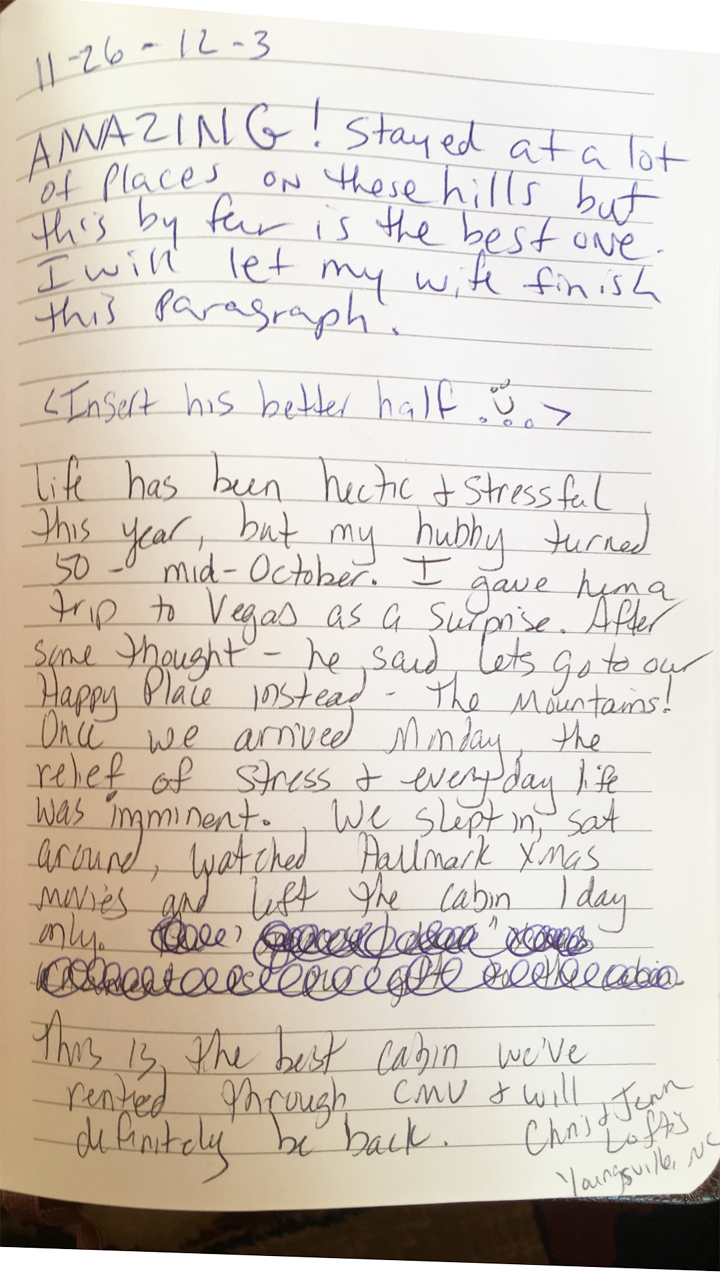 11-26-12-3
AMAZING! Stayed at a lot
of places on these hills but
this by far is the best one.
I will let my wife finish
this Paragraph.
<Insert his better half >
Life has been hectic + stressful
this year, but my hubby turned
50 - mid-October. I gave him a
trip to Vegas as a surprise. After
some thought - he said lets go to our
Happy Place instead - the Mountains!
Once we arrived Monday, the
relief of stress + everyday life
was imminent. We slept in, sat
around, watched Hallmark Xmas
movies and left the cabin 1 day
only.
This is the best cabin we've
rented through CMV + will
definitely be back. Chris + Jenn
Loftis
Youngsville, NC